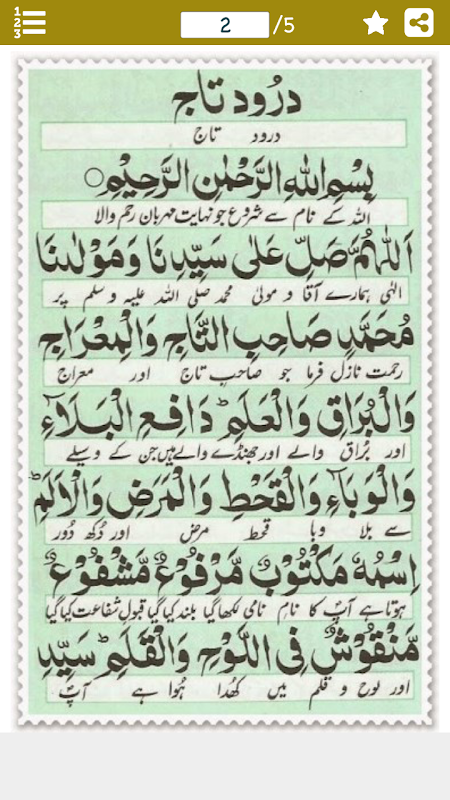 1
2
3
2 /5
درُود تاج
درود تاج
بِسْمِ اللهِ الرَّحْمٰنِ الرَّحِيْمِ○
اللہ کے نام سے شروع جو نہایت مہربان رحم والا
اَللّٰهُمَّ صَلِّ عَلٰى سَيِّدِنَا وَمَوْلٰىنَا
الہٰی ہمارے آقا و مولیٰ محمد صلی اللہ علیہ وسلم پر
مُحَمَّدٍ صَاحِبِ التَّاجِ وَالْمِعْرَاجِ
رحمت نازل فرما جو صاحبِ تاج اور معراج
وَالْبُرَاقِ وَالْعَلَمِ ؕ دَافِعِ الْبَلَآءِ
اور بُراق والے اور جھنڈے والے ہیں جن کے وسیلے
وَالْوَبَآءِ وَالْقَحْطِ وَالْمَرَضِ وَالْاَلَمِ ؕ
سے بلا وبا قحط مرض اور دُکھ دُور
اِسْمُهٗ مَكْتُوْبٌ مَّرْفُوْعٌ مَّشْفُوْعٌ
ہوتا ہے آپؐ کا نام نامی لکھا گیا بلند کیا گیا قبول شفاعت کیا گیا
مَّنْقُوْشٌ فِى اللَّوْحِ وَالْقَلَمِ ؕ سَيِّدِ
اور لوح و قلم میں کھُدا ہُوا ہے آپؐ